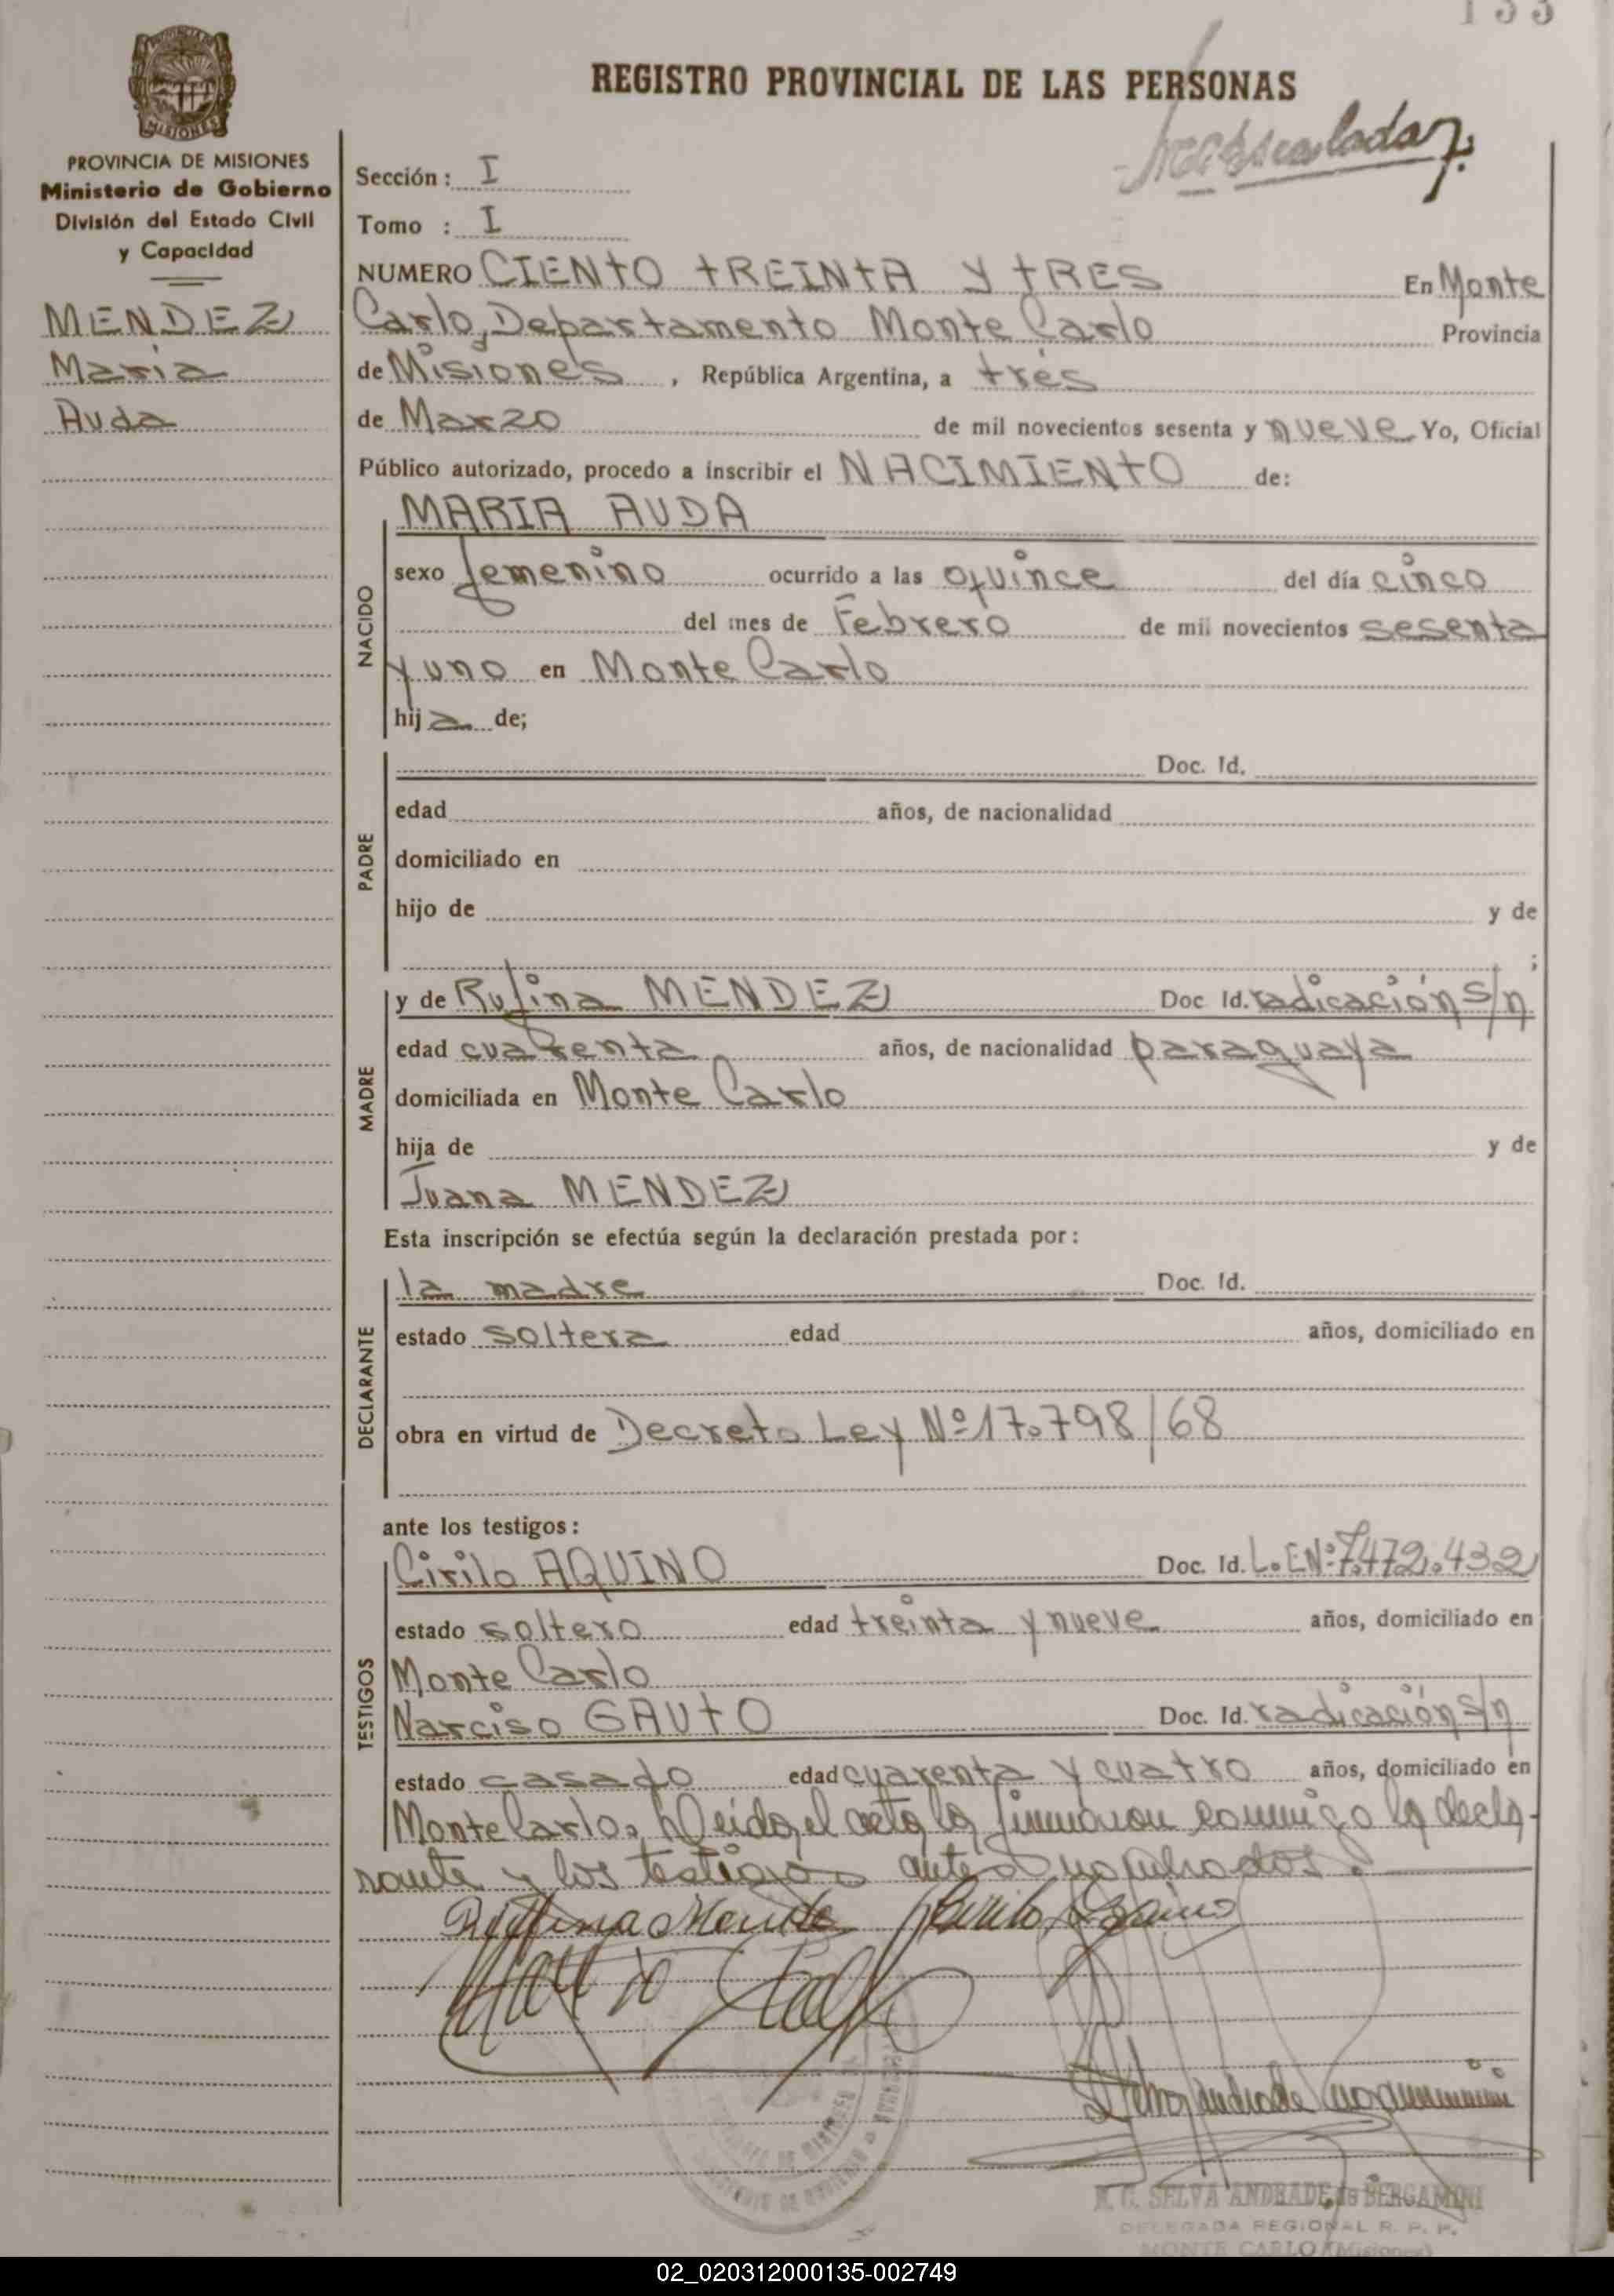 133
REGISTRO PROVINCIAL DE LAS PERSONAS
PROVINCIA DE MISIONES
Ministerio de Gobierno
División del Estado Civil
y Capacidad
MENDEZ
Maria
Auda
Sección: I
Tomo : I
NUMERO CIENTO TREINTA Y TRES En Monte
Carlo, Departamento Monte Carlo Provincia
de Misiones, República Argentina, a tres
de Marzo de mil novecientos sesenta y nueve Yo, Oficial
Público autorizado, procedo a inscribir el NACIMIENTO de:
NACIDO
MARIA AUDA
sexo femenino ocurrido a las quince del día cinco
del mes de Febrero de mil novecientos sesenta
y uno en Monte Carlo
hija de;
PADRE
Doc. Id.
edad años, de nacionalidad
domiciliado en
hijo de y de
;
MADRE
y de Rufina MENDEZ Doc Id. radicación s/n
edad cuarenta años, de nacionalidad paraguaya
domiciliada en Monte Carlo
hija de y de
Juana MENDEZ
Esta inscripción se efectúa según la declaración prestada por:
DECLARANTE
la madre Doc. Id.
estado soltera edad años, domiciliado en
obra en virtud de Decreto Ley Nº 17.798/68
ante los testigos:
TESTIGOS
Cirilo AQUINO Doc. Id. L.E.Nº 7.472.432
estado soltero edad treinta y nueve años, domiciliado en
Monte Carlo
Narciso GAUTO Doc. Id. radicación s/n
estado casado edad cuarenta y cuatro años, domiciliado en
Monte Carlo. Leida el acta la firmaron conmigo la decla-
rante y los testigos antes nombrados.
Rufina Mende Cirilo Aquino
M. C. SELVA ANDRADE de BERGAMINI
DELEGADA REGIONAL R. P. P.
MONTE CARLO (Misiones)
02_020312000135-002749